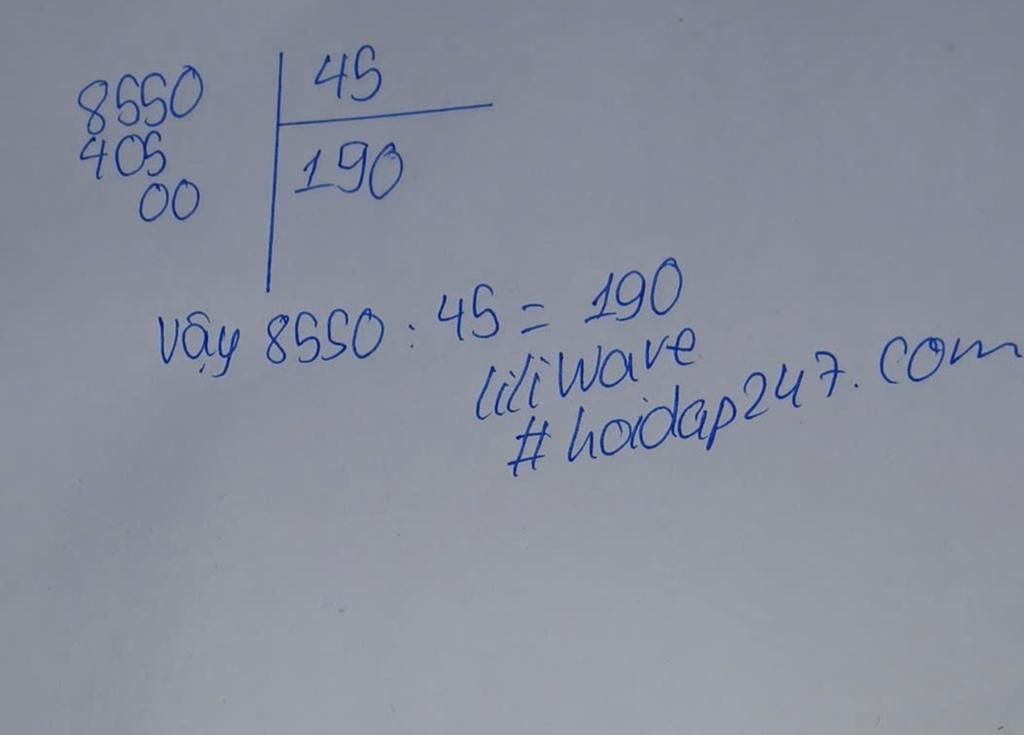 8550 45
405 190
00
Vậy 8550 : 45 = 190
liliwave
#hoidap247.com